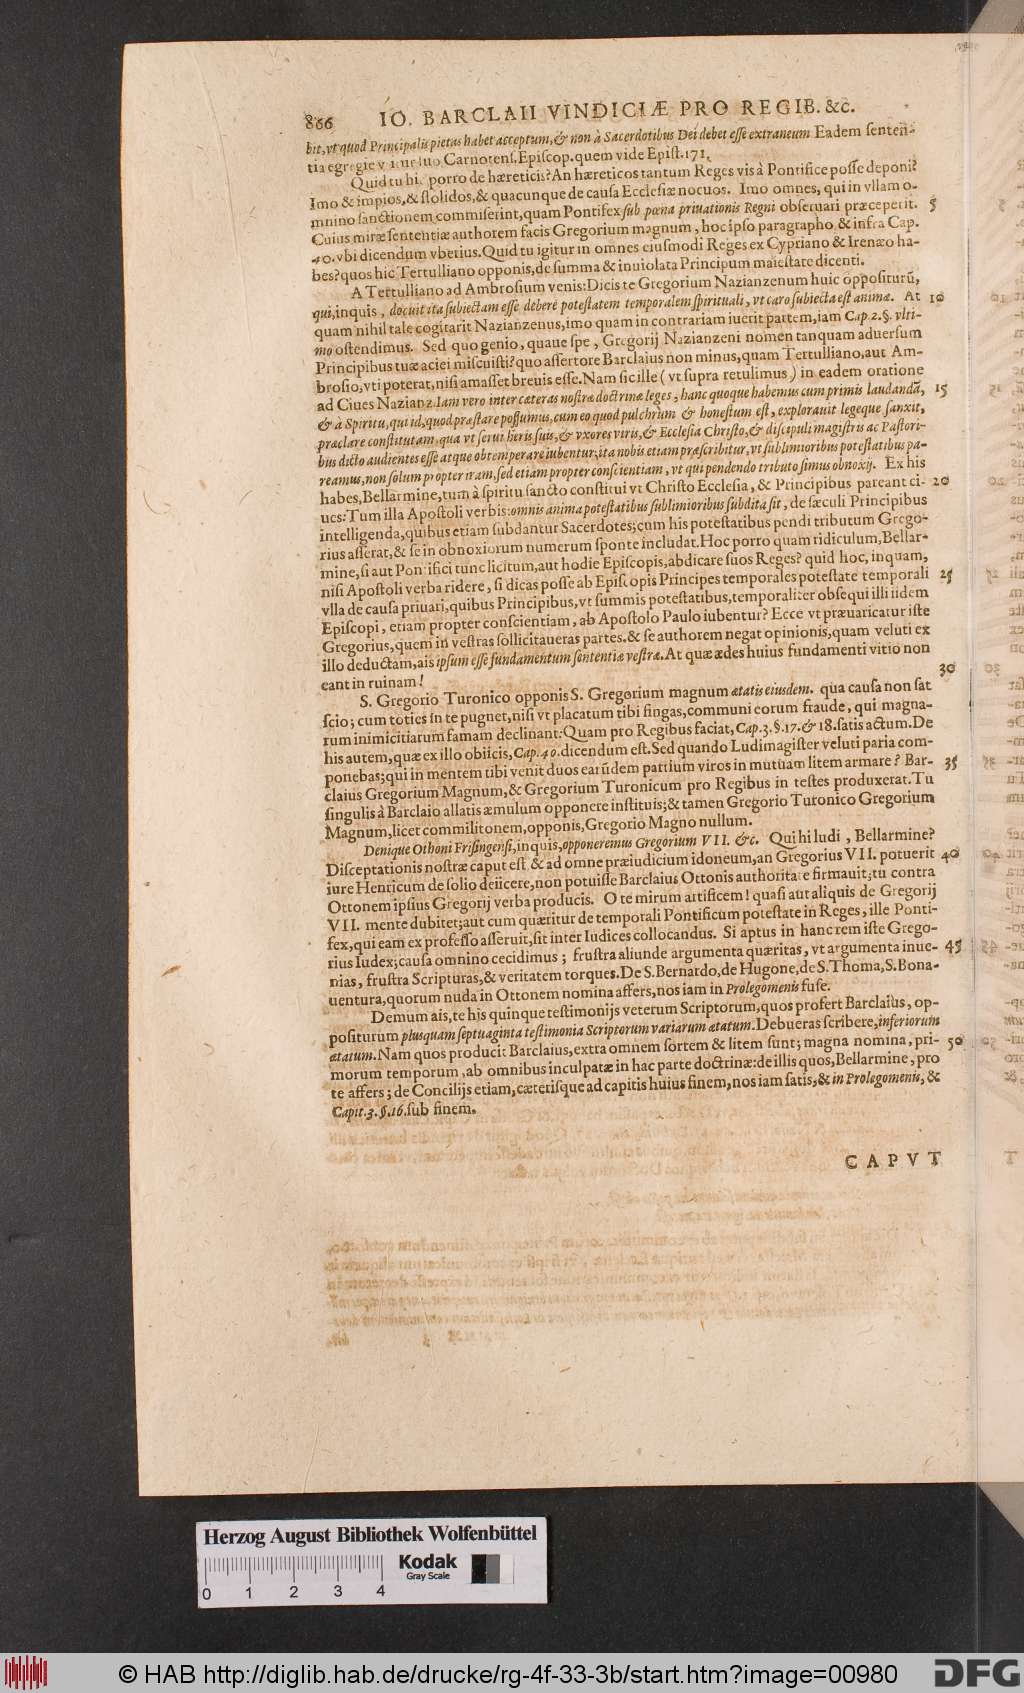 866 IO. BARCLAII VINDICIÆ PRO REGIB. &c.
bit, vt quod Principalis pietas habet acceptum, & non à Sacerdotibus Dei debet esse extraneum Eadem senten-
tia egregie Carnotens. Episcop. quem vide Epist. 171.
Quid tu hi porro de hæreticis? An hæreticos tantum Reges vis à Pontifice posse deponi?
Imo & impios, & stolidos, & quacunque de causa Ecclesiæ nocuos. Imo omnes, qui in vllam o-
mnino sanctionem commiserint, quam Pontifex sub pœna priuationis Regni obseruari præceperit. 5
Cuius miræ sententiæ authorem facis Gregorium magnum, hoc ipso paragrapho & infra Cap.
40. vbi dicendum vberius. Quid tu igitur in omnes eiusmodi Reges ex Cypriano & Irenæo ha-
bes? quos hic Tertulliano opponis, de summa & inuiolata Principum maiestate dicenti.
A Tertulliano ad Ambrosium venis: Dicis te Gregorium Nazianzenum huic oppositurũ,
qui, inquis, docuit ita subiectam esse debere potestatem temporalem spirituali, vt caro subiecta est animæ. At 10
quam nihil tale cogitarit Nazianzenus, imo quam in contrariam iuerit partem, iam Cap. 2. §. vlti-
mo ostendimus. Sed quo genio, quaue spe, Gregorij Nazianzeni nomen tanquam aduersum
Principibus tuæ aciei miscuisti? quo assertore Barclaius non minus, quam Tertulliano, aut Am-
brosio, vti poterat, nisi amasset breuis esse. Nam sic ille (vt supra retulimus) in eadem oratione
ad Ciues Nazianz. Iam vero inter cæteras nostræ doctrinæ leges, hanc quoque habemus cum primis laudandã, 15
& à Spiritu, qui id, quod præstare possumus, cum eo quod pulchrum & honestum est, explorauit legeque sanxit,
præclare constitutam, qua vt serui heris suis, & vxores viris, & Ecclesia Christo, & discipuli magistris ac Pastori-
bus dicto audientes esse atque obtemperare iubentur; ita nobis etiam præscribitur, vt sublimioribus potestatibus pa-
reamus, non solum propter iram, sed etiam propter conscientiam, vt qui pendendo tributo simus obnoxij. Ex his
habes, Bellarmine, tum à spiritu sancto constitui vt Christo Ecclesia, & Principibus pareant ci- 20
ues: Tum illa Apostoli verbis: omnis anima potestatibus sublimioribus subdita sit, de sæculi Principibus
intelligenda, quibus etiam subdantur Sacerdotes; cum his potestatibus pendi tributum Grego-
rius asserat, & se in obnoxiorum numerum sponte includat. Hoc porro quam ridiculum, Bellar-
mine, si aut Pontifici tunc licitum, aut hodie Episcopis, abdicare suos Reges? quid hoc, inquam,
nisi Apostoli verba ridere, si dicas posse ab Episcopis Principes temporales potestate temporali 25
vlla de causa priuari, quibus Principibus, vt summis potestatibus, temporaliter obsequi illi iidem
Episcopi, etiam propter conscientiam, ab Apostolo Paulo iubentur? Ecce vt præuaricatur iste
Gregorius, quem in vestras sollicitaueras partes. & se authorem negat opinionis, quam veluti ex
illo deductam, ais ipsum esse fundamentum sententiæ vestræ. At quæ ædes huius fundamenti vitio non
eant in ruinam! 30
S. Gregorio Turonico opponis S. Gregorium magnum ætatis eiusdem. qua causa non sat
scio; cum toties in te pugnet, nisi vt placatum tibi fingas, communi eorum fraude, qui magna-
rum inimicitiarum famam declinant: Quam pro Regibus faciat, Cap. 3. §. 17. & 18. satis actum. De
his autem, quæ ex illo obiicis, Cap. 40. dicendum est. Sed quando Ludimagister veluti paria com-
ponebas; qui in mentem tibi venit duos earũdem partium viros in mutuam litem armare? Bar- 35
claius Gregorium Magnum, & Gregorium Turonicum pro Regibus in testes produxerat. Tu
singulis à Barclaio allatis æmulum opponere instituis; & tamen Gregorio Turonico Gregorium
Magnum, licet commilitonem, opponis, Gregorio Magno nullum.
Denique Othoni Frisingensi, inquis, opponeremus Gregorium VII. &c. Qui hi ludi, Bellarmine?
Disceptationis nostræ caput est & ad omne præiudicium idoneum, an Gregorius VII. potuerit 40
iure Henricum de solio deiicere, non potuisse Barclaius Ottonis authoritate firmauit; tu contra
Ottonem ipsius Gregorij verba producis. O te mirum artificem! quasi aut aliquis de Gregorij
VII. mente dubitet; aut cum quæritur de temporali Pontificum potestate in Reges, ille Ponti-
fex, qui eam ex professo asseruit, sit inter Iudices collocandus. Si aptus in hanc rem iste Grego-
rius Iudex; causa omnino cecidimus; frustra aliunde argumenta quæritas, vt argumenta inue- 45
nias, frustra Scripturas, & veritatem torques. De S. Bernardo, de Hugone, de S. Thoma, S. Bona-
uentura, quorum nuda in Ottonem nomina affers, nos iam in Prolegomenis fuse.
Demum ais, te his quinque testimonijs veterum Scriptorum, quos profert Barclaius, op-
positurum plusquam septuaginta testimonia Scriptorum variarum ætatum. Debueras scribere, inferiorum
ætatum. Nam quos producit Barclaius, extra omnem sortem & litem sunt; magna nomina, pri- 50
morum temporum, ab omnibus inculpatæ in hac parte doctrinæ: de illis quos, Bellarmine, pro
te affers; de Concilijs etiam, cæterisque ad capitis huius finem, nos iam satis, & in Prolegomenis, &
Capit. 3. §. 16. sub finem.
CAPVT
Herzog August Bibliothek Wolfenbüttel
Kodak
Gray Scale
0 1 2 3 4
© HAB http://diglib.hab.de/drucke/rg-4f-33-3b/start.htm?image=00980
DFG